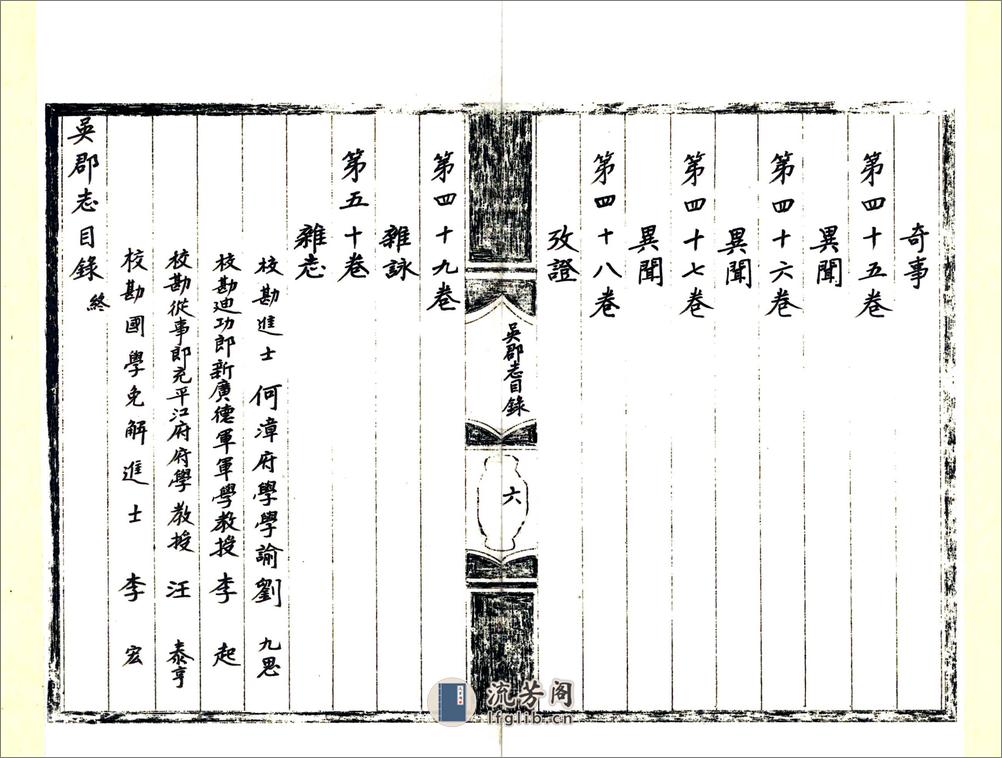 奇事
第四十五卷
異聞
第四十六卷
異聞
第四十七卷
異聞
第四十八卷
攷證
吳郡志目錄
六
第四十九卷
雜詠
第五十卷
雜志
校勘進士何漳府學學諭劉九思
校勘迪功郎新廣德軍軍學教授李起
校勘從事郎充平江府府學教授汪泰亨
校勘國學免解進士李宏
吳郡志目錄終
流芳阁
lfglib.cn